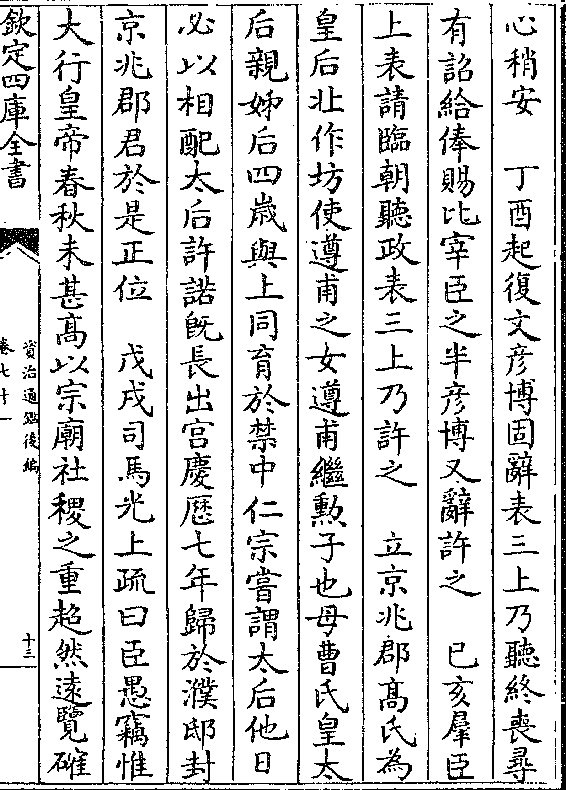 心稍安　丁酉起復文彦博固辭表三上乃聽終喪尋
有詔給俸賜比宰臣之半彦博又辭許之　己亥羣臣
上表請臨朝聽政表三上乃許之　立京兆郡髙氏為
皇后北作坊使遵甫之女遵甫繼勲子也母曹氏皇太
后親姊后四歲與上同育於禁中仁宗嘗謂太后他日
必以相配太后許諾旣長出宫慶厯七年歸於濮邸封
京兆郡君於是正位　戊戌司馬光上疏曰臣愚竊惟
大行皇帝春秋未甚髙以宗廟社稷之重超然逺覽確
欽定四庫全書
資治通鑑後編
卷七十一
十三